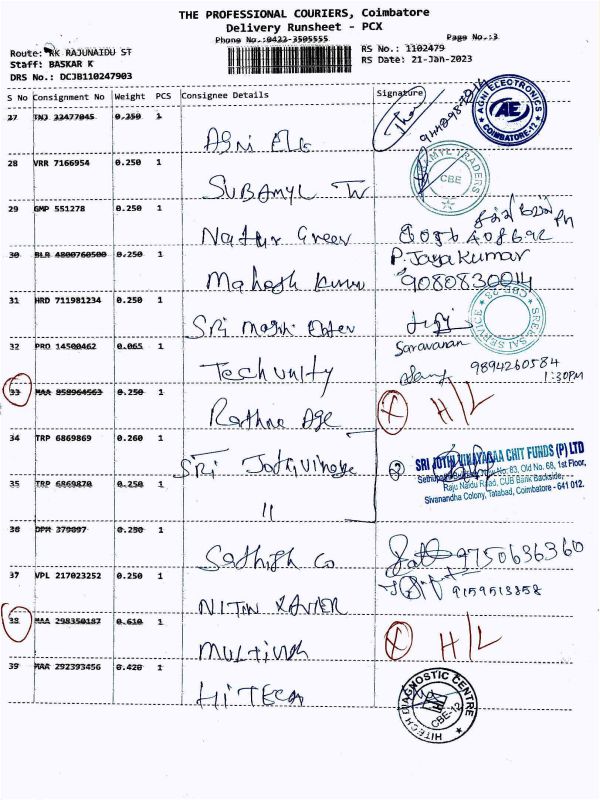 THE PROFESSIONAL COURIERS, Coimbatore
Delivery Runsheet - PCX
Phone No.:0422-3505555 Page No.:3
Route: RK RAJUNAIDU ST RS No.: 1102479
Staff: BASKAR K RS Date: 21-Jan-2023
DRS No.: DCJB110247903
S No Consignment No Weight PCS Consignee Details Signature
27 TNJ 33477045 0.250 1
AGNI ELECTRONICS
AE
COIMBATORE-12
28 VRR 7166954 0.250 1
SUBAMYL
TRADERS
CBE
29 GMP 551278 0.250 1
Nattur Green
30 BLR 4800760500 0.250 1
Mahesh Kumar P. Jaya Kumar
9080830014
31 HRD 711981234 0.250 1
SREE SAI SERVICE
32 PRO 14500462 0.065 1
Saravanan
Tech unity 9894260584
1:30PM
33 MAA 858964563 0.250 1
Rathna Age X H/L
34 TRP 6869869 0.260 1
SRI Jothi SRI JOTHI VINAYAGAA CHIT FUNDS (P) LTD
No: 83, Old No. 68, 1st Floor,
35 TRP 6869870 0.250 1
Raju Naidu Road, CUB Bank Backside,
Sivanandha Colony, Tatabad, Coimbatore - 641 012.
11
36 DPM 379097 0.250 1
Sathish Co 9750636360
37 VPL 217023252 0.250 1
9159513858
NITIN XAVIER
38 MAA 298350187 0.610 1
X H/L
39 MAA 292393456 0.420 1
HITECH
HITECH DIAGNOSTIC CENTRE
CBE-12